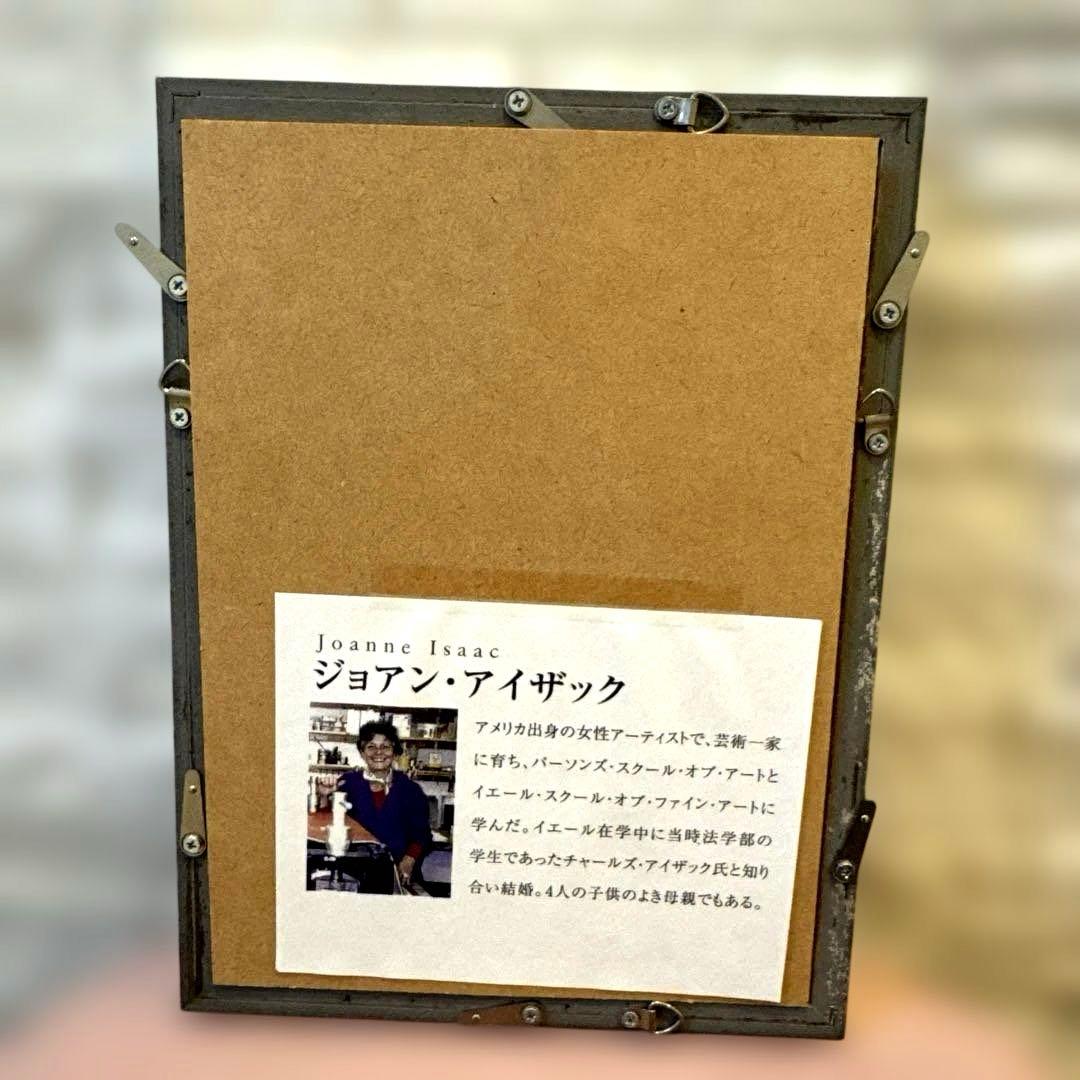 Joanne Isaac
ジョアン・アイザック
アメリカ出身の女性アーティストで、芸術一家
に育ち、パーソンズ・スクール・オブ・アートと
イエール・スクール・オブ・ファイン・アートに
学んだ。イエール在学中に当時法学部の
学生であったチャールズ・アイザック氏と知り
合い結婚。4人の子供のよき母親でもある。